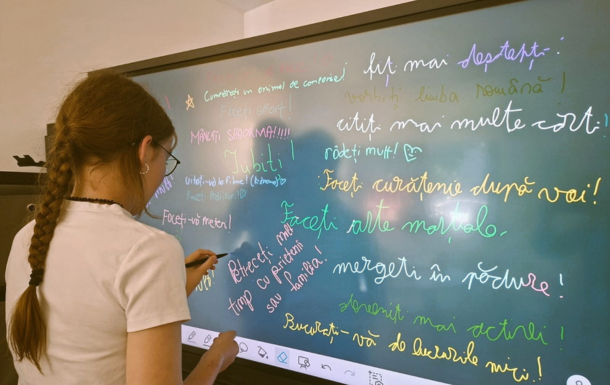 fiți mai deștepți!
Cumpărați un animal de companie!
vorbiți limba română!
Faceți sport!
citiți mai multe cărți!
MÂNCAȚI SHAORMA!!!!
Iubiți!
râdeți mult!
Faceți curățenie după voi!
Faceți-vă prieteni!
Faceți arte marțiale.
Petreceți mult
timp cu prietenii
sau familia!
mergeți în pădure!
deveniți mai activi!
Bucurați-vă de lucrurile mici!